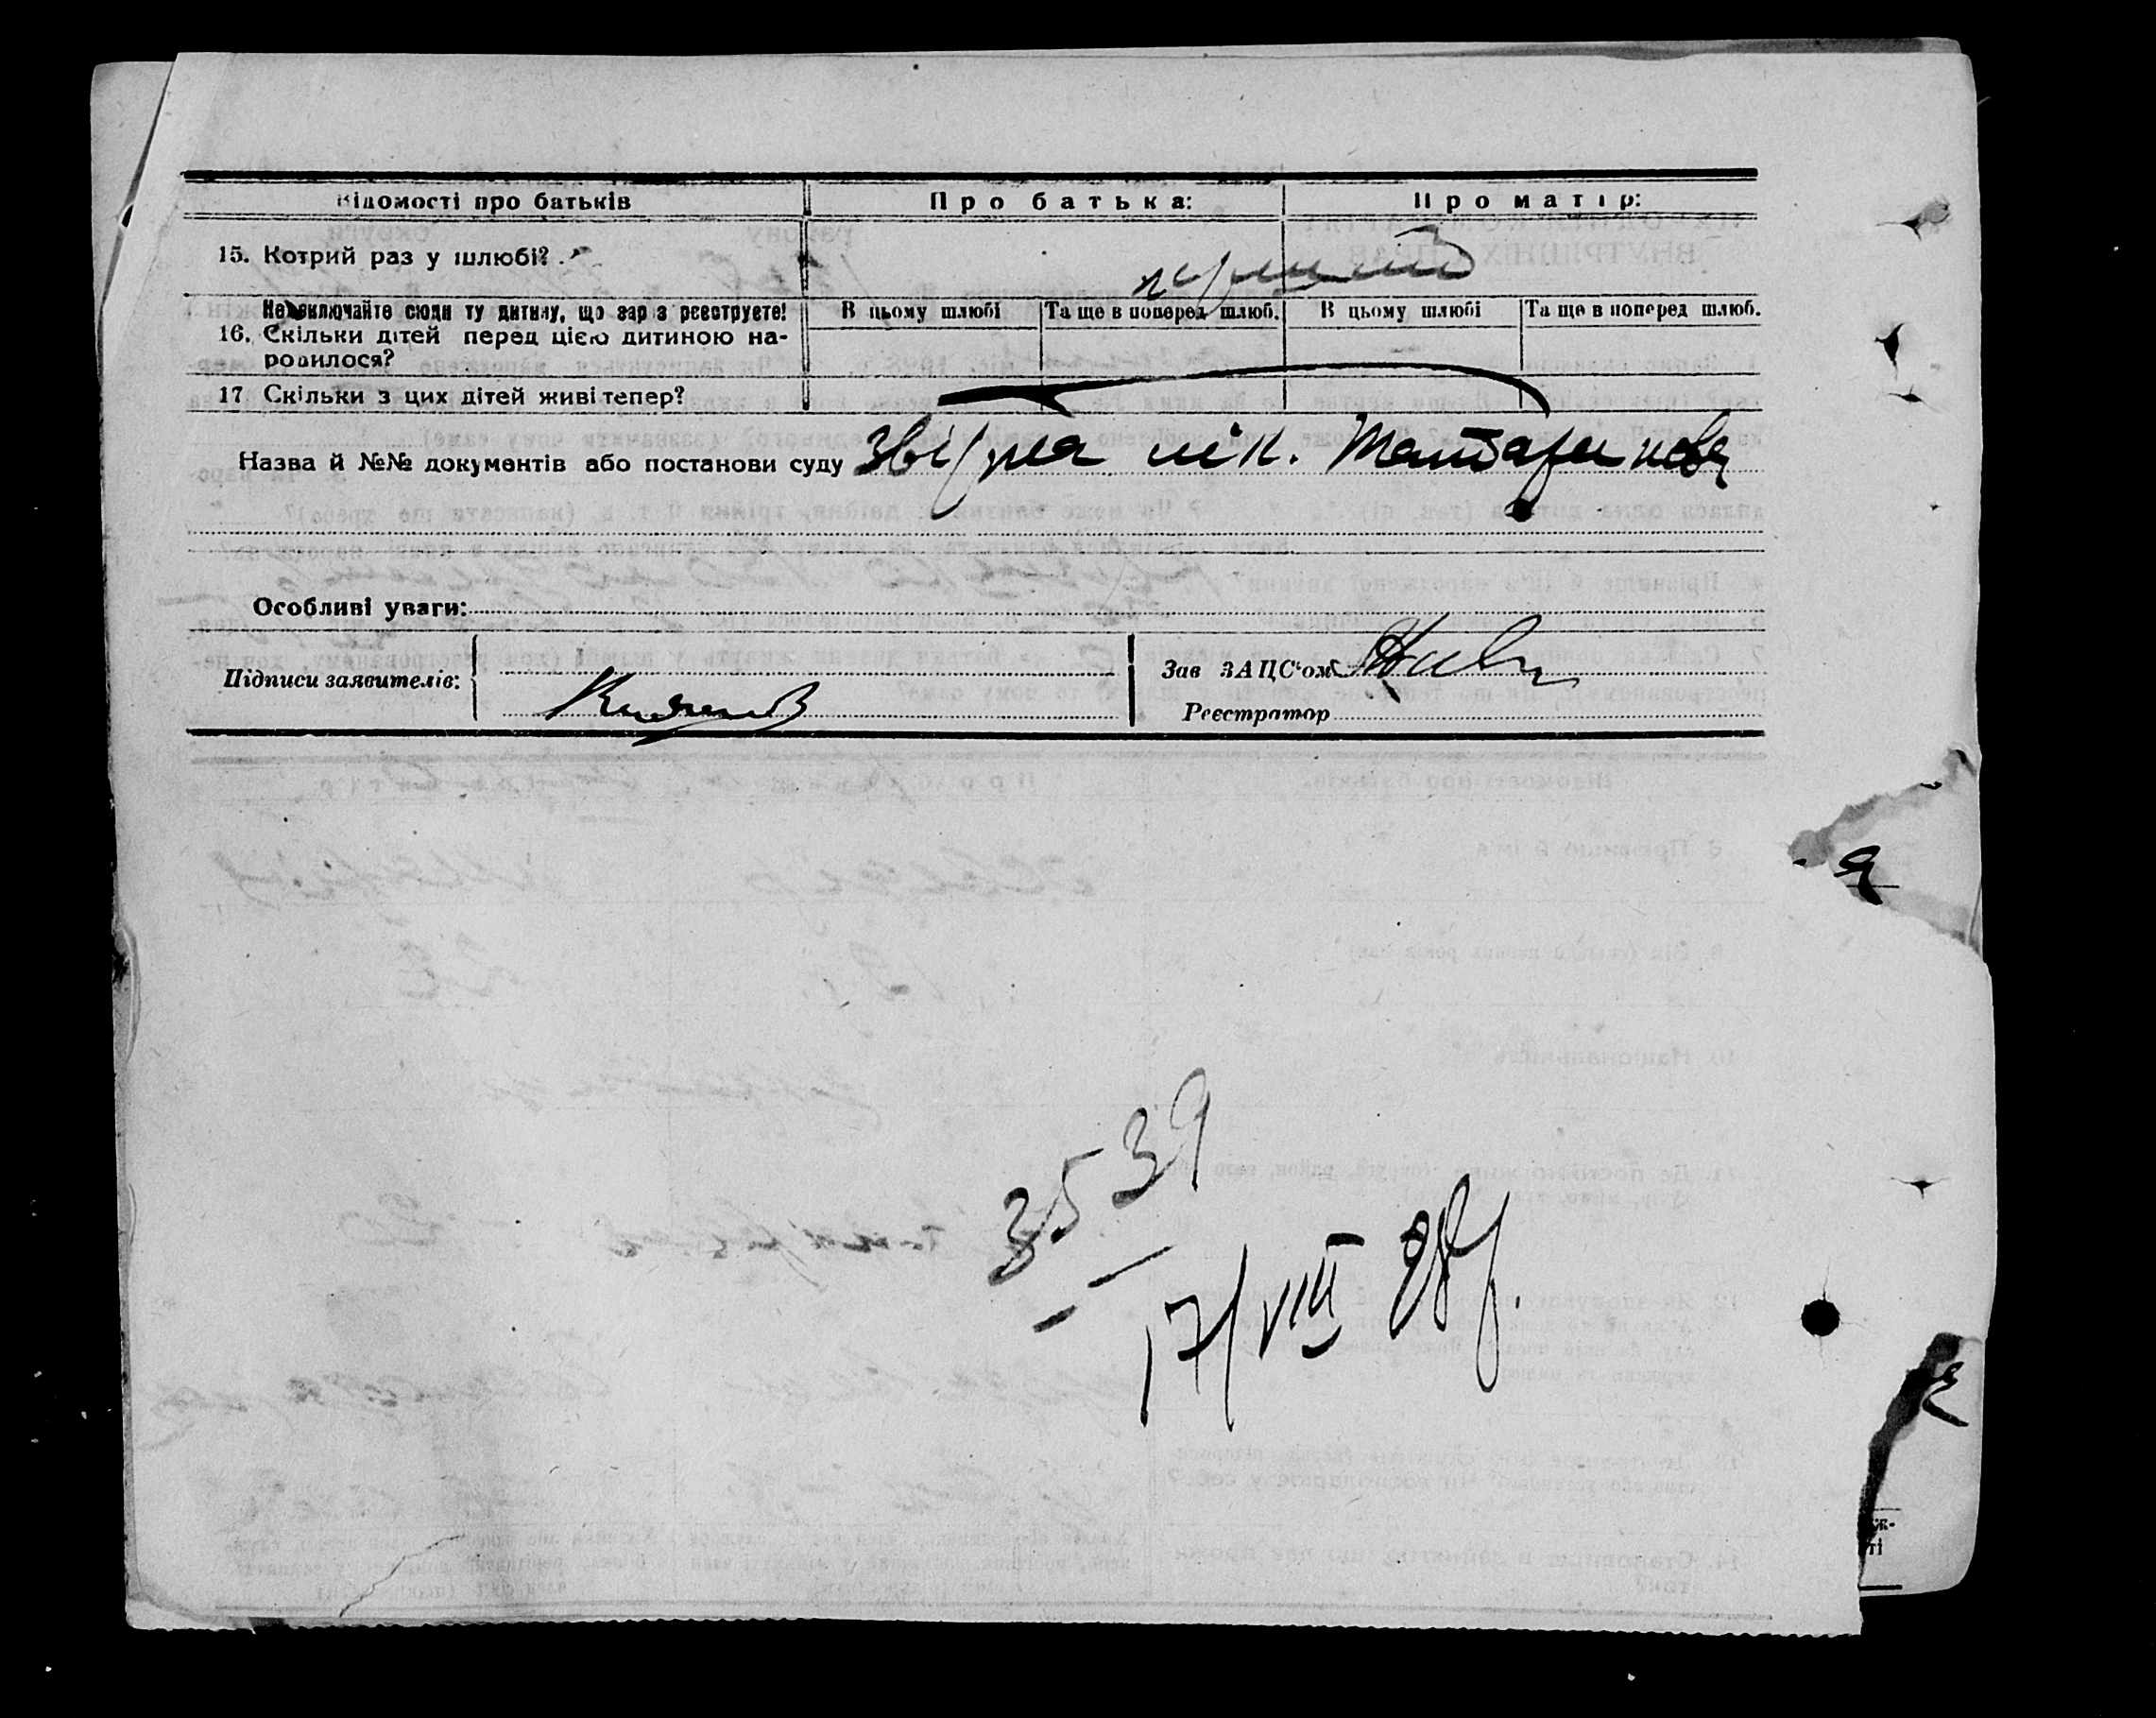 Відомості про батьків
Про батька:
Про матір:
15. Котрий раз у шлюбі?
перший
Не включайте сюди ту дитину, що зараз реєструєте!
16. Скільки дітей перед цією дитиною на-
родилося?
В цьому шлюбі
Та ще в поперед. шлюб.
В цьому шлюбі
Та ще в поперед шлюб.
17 Скільки з цих дітей живі тепер?
Назва й №№ документів або постанови суду
лік.
Особливі уваги:
Підписи заявителів:
Зав ЗАЦС'ом
Реєстратор
3539
17/VIII 28р.